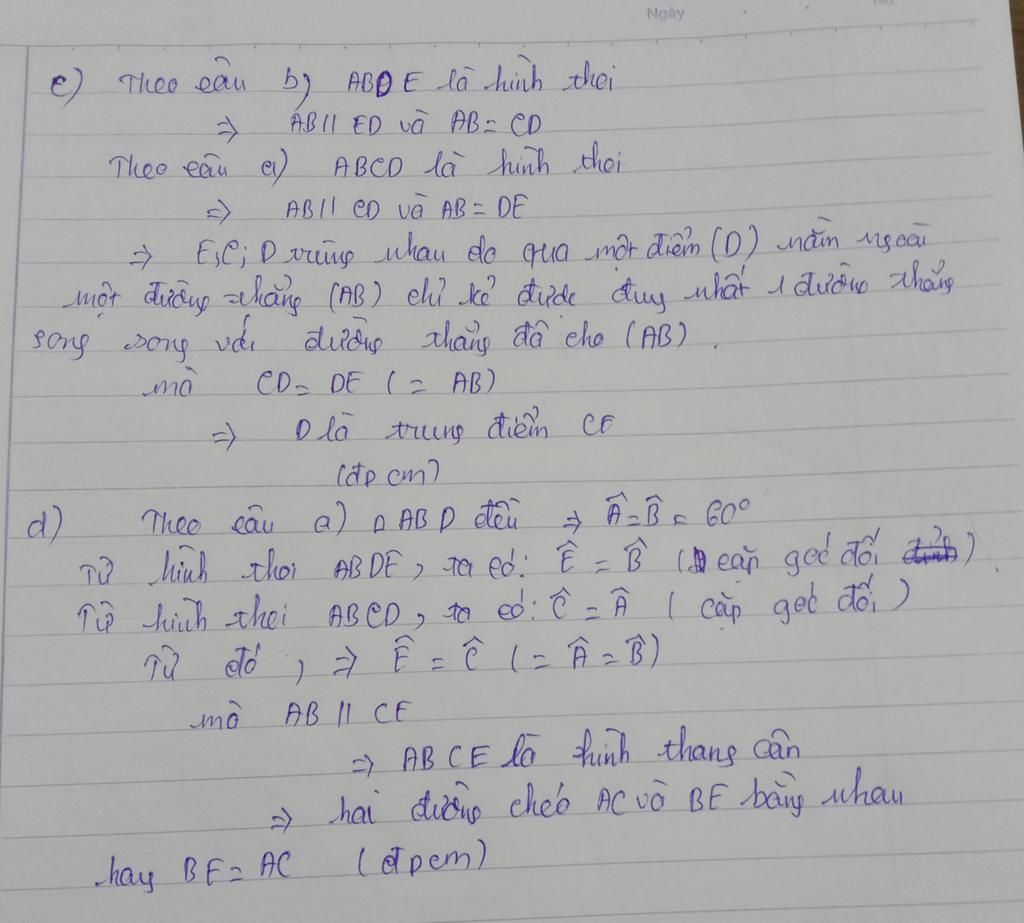 Ngày
c) Theo câu b) ABDE là hình thoi
⇒ AB // ED và AB = CD
Theo câu a) ABCD là hình thoi
⇒ AB // CD và AB = DE
⇒ E, C, D trùng nhau do qua một điểm (D) nằm ngoài
một đường thẳng (AB) chỉ kẻ được duy nhất 1 đường thẳng
song song với đường thẳng đã cho (AB).
mà CD = DE (= AB)
⇒ D là trung điểm CE
(đpcm)
d) Theo câu a) △ABD đều ⇒ Â = B̂ = 60°
Từ hình thoi ABDE, ta có: Ê = B̂ (cặp góc đối)
Từ hình thoi ABCD, ta có: Ĉ = Â (cặp góc đối)
Từ đó, ⇒ Ê = Ĉ (= Â = B̂)
mà AB // CE
⇒ ABCE là hình thang cân
⇒ hai đường chéo AC và BE bằng nhau
hay BE = AC (đpcm)